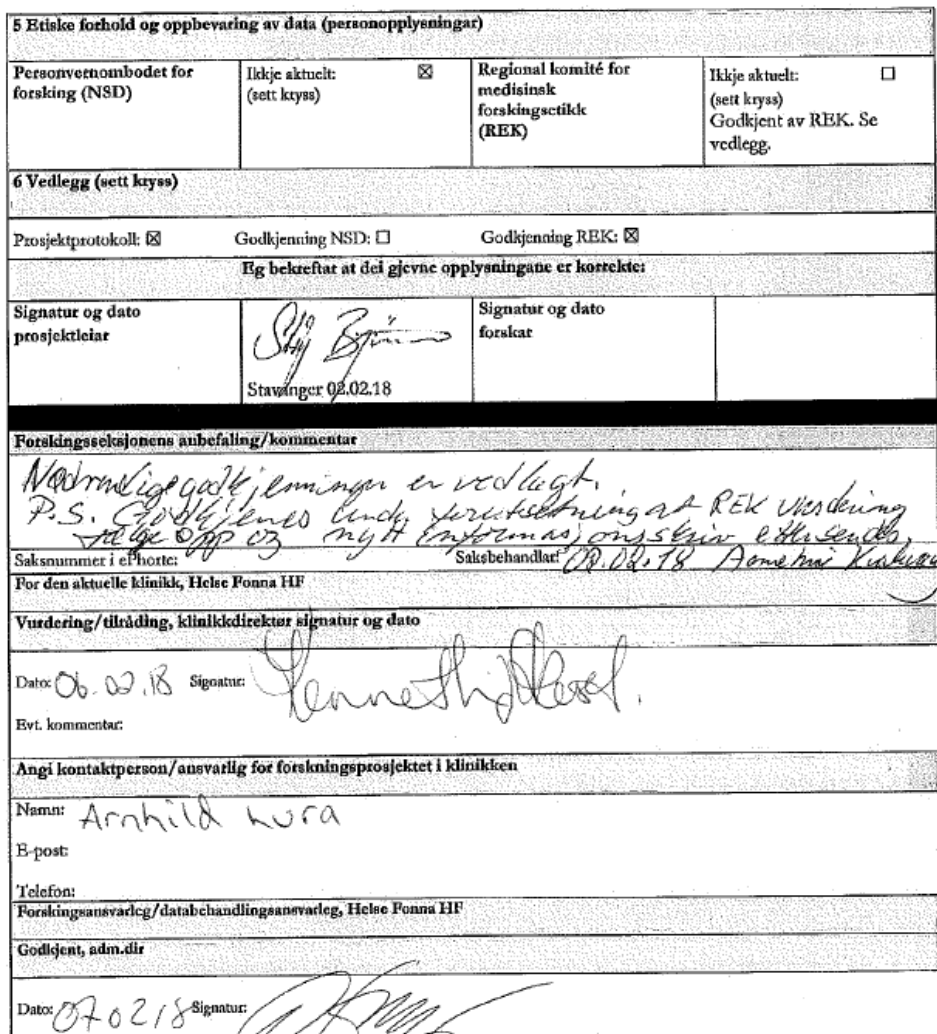 5 Etiske forhold og oppbevaring av data (personopplysningar)
Personvernombodet for forsking (NSD)
Ikkje aktuelt: ☒
(sett kryss)
Regional komité for medisinsk forskingsetikk (REK)
Ikkje aktuelt: ☐
(sett kryss)
Godkjent av REK. Se vedlegg.
6 Vedlegg (sett kryss)
Prosjektprotokoll: ☒ Godkjenning NSD: ☐ Godkjenning REK: ☒
Eg bekreftar at dei gjevne opplysningane er korrekte:
Signatur og dato prosjektleiar
Stavanger 02.02.18
Signatur og dato forskar
Forskingsseksjonens anbefaling/kommentar
Nødvendige godkjenninger er vedlagt.
P.S. Godkjenes under forutsetning at REK vurdering
følge opp og nytt informasjonsskriv ettersendes.
Saksnummer i ePhorte: Saksbehandlar: 02.18
For den aktuelle klinikk, Helse Fonna HF
Vurdering/tilråding, klinikkdirektør signatur og dato
Dato: 06.02.18 Signatur:
Evt. kommentar:
Angi kontaktperson/ansvarlig for forskningsprosjektet i klinikken
Namn: Arnhild Lura
E-post:
Telefon:
Forskingsansvarleg/databehandlingsansvarleg, Helse Fonna HF
Godkjent, adm.dir
Dato: 07 02 18 Signatur: